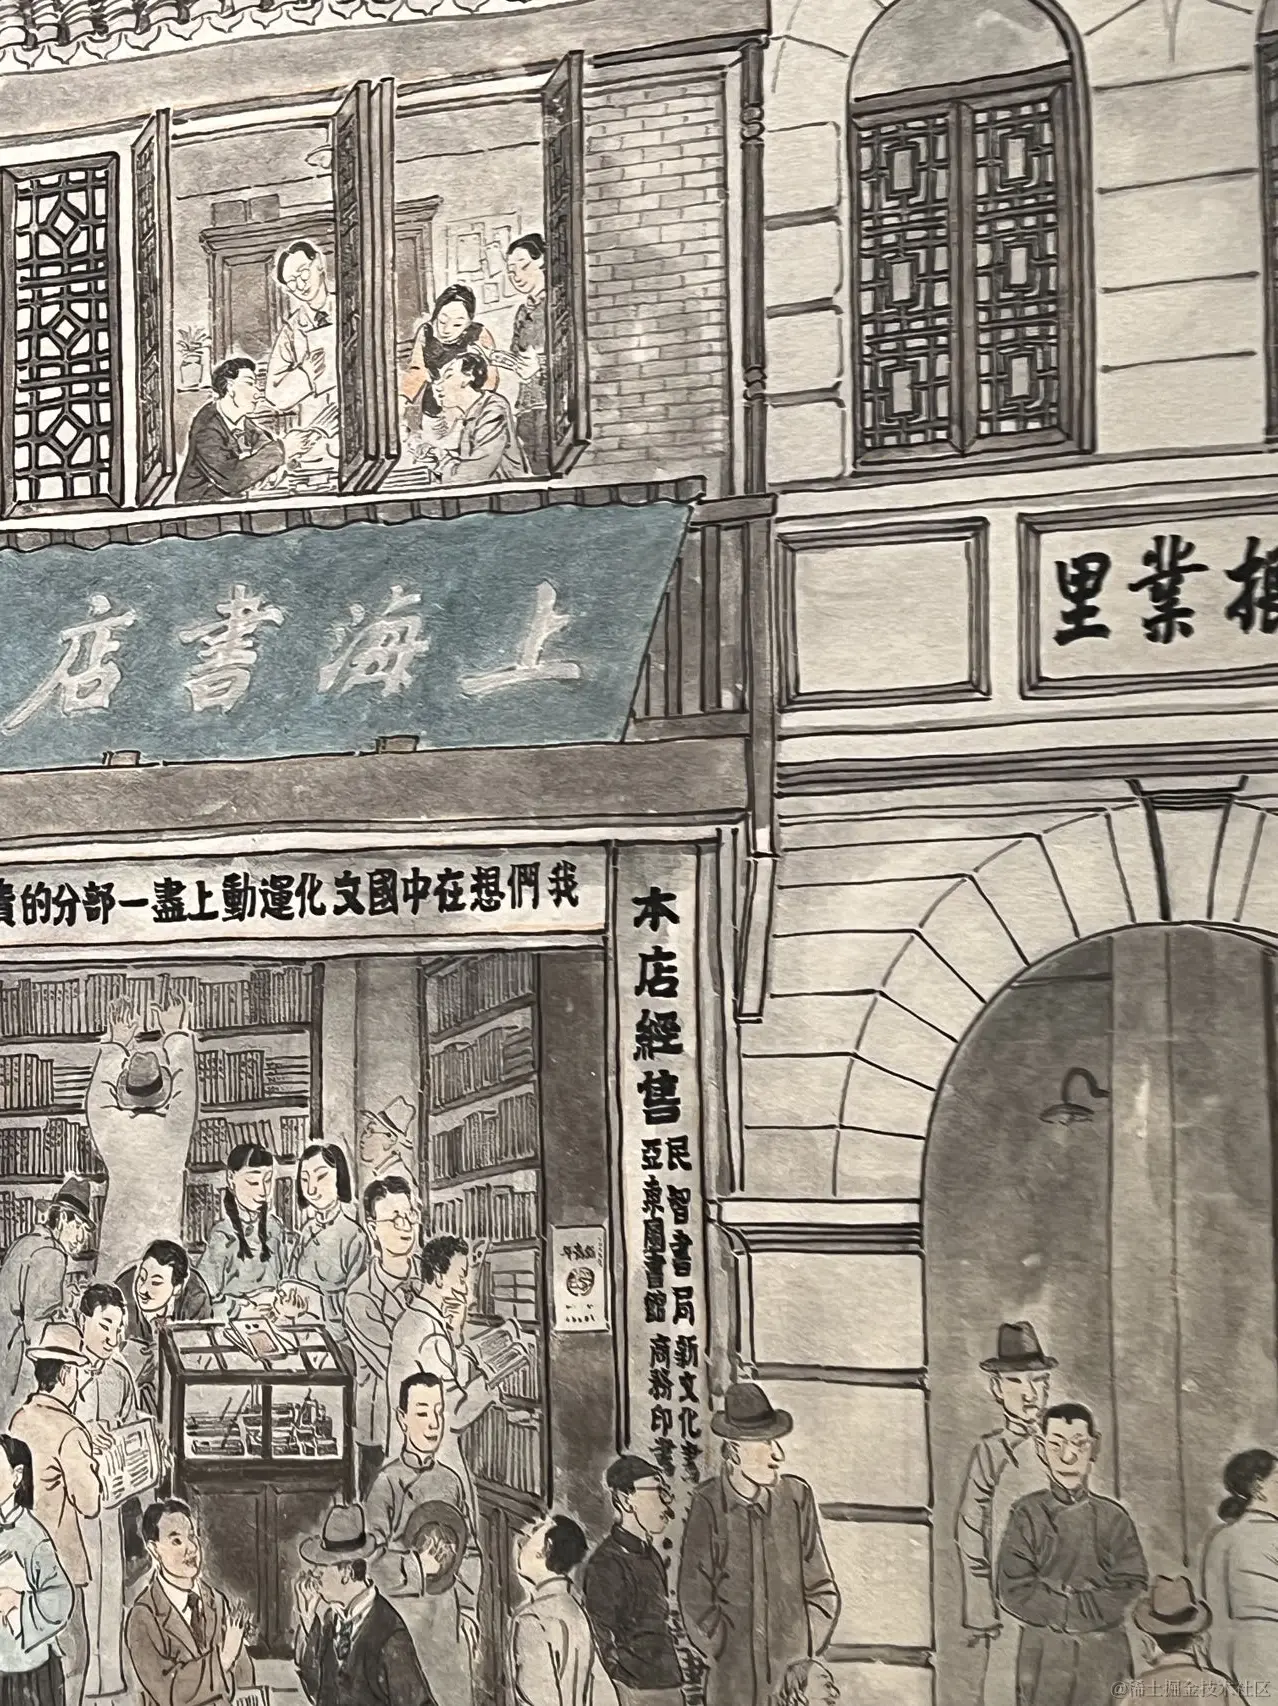 上海書店
業里
我們想在中國文化運動上盡一部分的
本店經售
民智書局 新文化書
亞東圖書館 商務印書
@稀土掘金技术社区